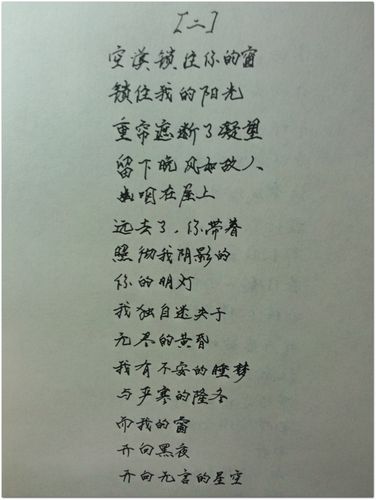 [二]
空漠锁住你的窗
锁住我的阳光
重帘遮断了凝望
留下晚风如故人、
幽咽在屋上
远去了，你带着
照彻我阴影的
你的明灯
我独自迷失于
无尽的黄昏
我有不安的睡梦
与严寒的隆冬
而我的窗
开向黑夜
开向无言的星空